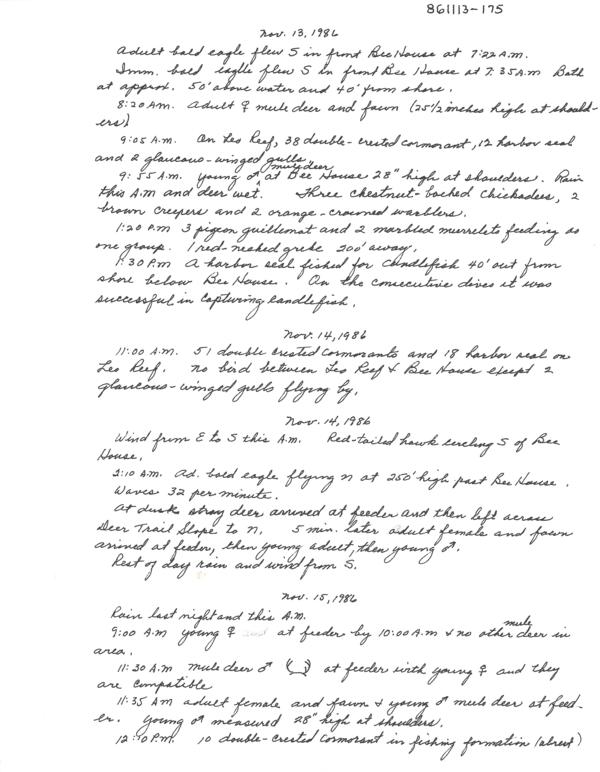 861113-175
Nov. 13, 1986
Adult bald eagle flew S in front Bee House at 7:22 A.M.
Imm. bald eagle flew S in front Bee House at 7:35 A.M Both
at approx. 50' above water and 40' from shore.
8:20 A.M. Adult ♀ mule deer and fawn (25 1/2 inches high at should-
ers)
9:05 A.m. On Leo Reef, 38 double-crested cormorant, 12 harbor seal
and 2 glaucous-winged gulls
9:55 A.m. young ♂ mule deer at Bee House 28" high at shoulders. Rain
this A.M and deer wet. Three chestnut-backed chickadees, 2
brown creepers and 2 orange-crowned warblers.
1:20 P.M 3 pigeon guillemot and 2 marbled murrelets feeding as
one group. 1 red-necked grebe 200' away.
1:30 P.m A harbor seal fished for candlefish 40' out from
shore below Bee House. On the consecutive dives it was
successful in capturing candlefish.
Nov. 14, 1986
11:00 A.M. 51 double crested cormorants and 18 harbor seal on
Leo Reef. No bird between Leo Reef & Bee House except 2
glaucous-winged gulls flying by.
Nov. 14, 1986
Wind from E to S this A.M. Red-tailed hawk circling S of Bee
House.
:10 A.M. Ad. bald eagle flying N at 250' high past Bee House.
Waves 32 per minute.
At dusk stray deer arrived at feeder and then left across
Deer Trail Slope to N. 5 min. later adult female and fawn
arrived at feeder, then young adult, then young ♂.
Rest of day rain and wind from S.
Nov. 15, 1986
Rain last night and this A.M.
9:00 A.M young ♀ at feeder by 10:00 A.M & no other mule deer in
area.
11:30 A.M. mule deer ♂ at feeder with young ♀ and they
are compatible
11:35 AM adult female and fawn & young ♂ mule deer at feed-
er. young ♂ measured 28" high at shoulders.
12:10 P.M. 10 double-crested cormorant in fishing formation (abrest)